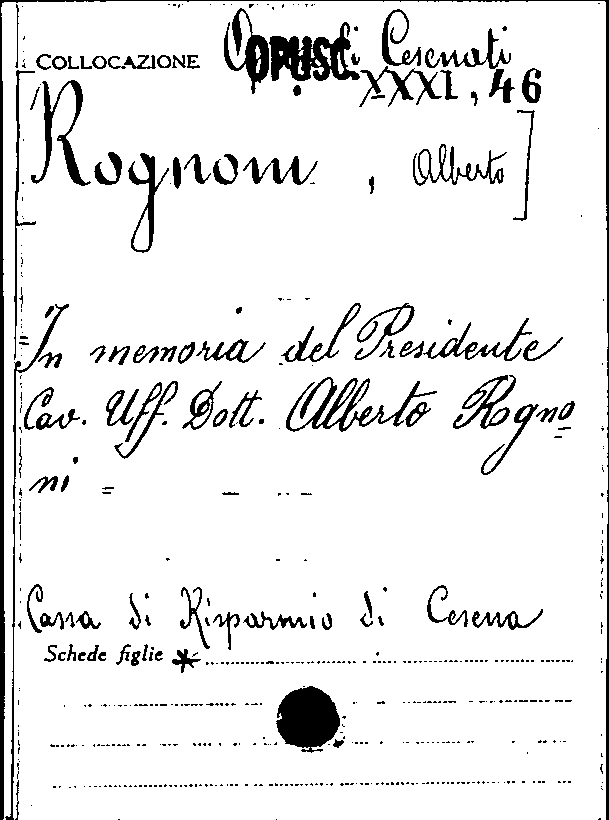 COLLOCAZIONE OPUSC. di Cesenati
XXXI, 46
[Rognoni, Alberto]
In memoria del Presidente
Cav. Uff. Dott. Alberto Rogno=
ni =
Cassa di Risparmio di Cesena
Schede figlie *